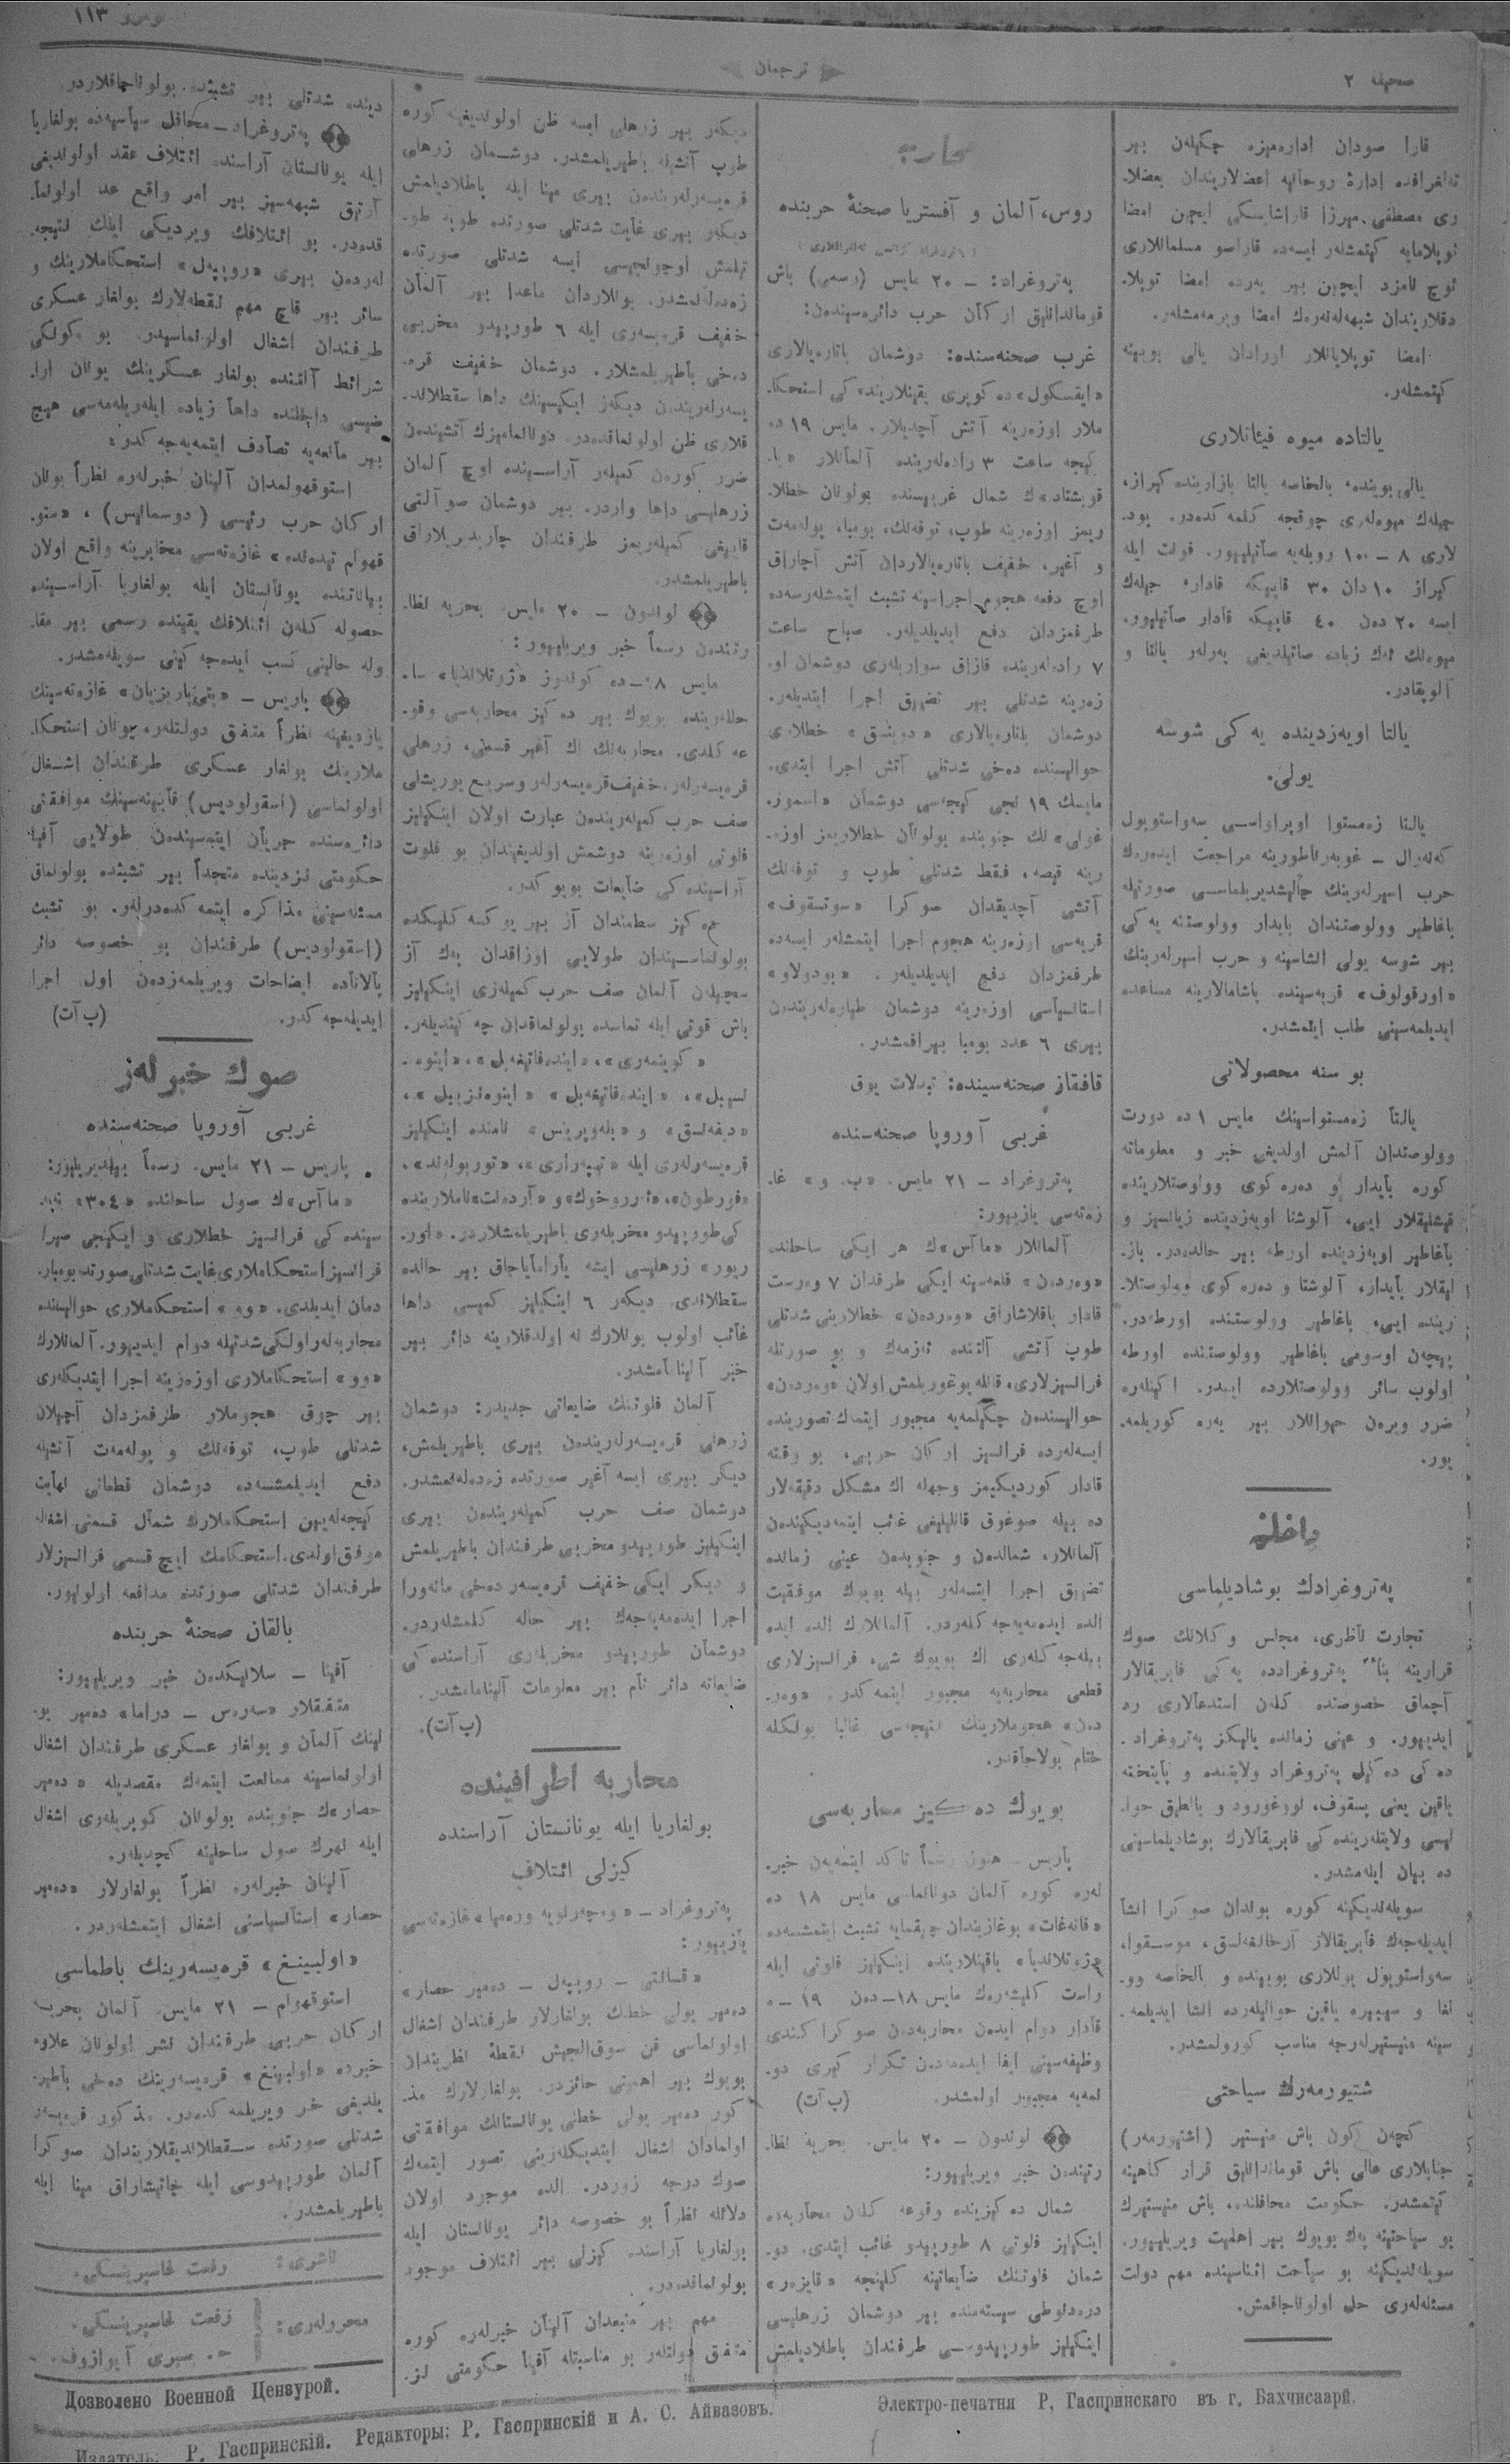 صحیفه ۲
ترجمان
نومرو ۱۱۳
قارا صودان اداره‌میزه چکیلەن بیر
تەلغرافده ادارۀ روحانیه اعضالاریندان بعضلا-
ری مصطفی میرزا قاراشایسکی ایچین امضا
توپلامایه کیتمشلەر ایسەده قاراسو مسلمانلاری
اوچ نامزد ایچین بیر یەرده امضا توپلا-
دقلاریندان شبهەلەنەرەك امضا ویرمەمشلەر.
امضا توپلایانلار اورادان یالی بویینه
کیتمشلەر.
یالتاده میوه فیئاتلاری
یالی بوینده، بالخاصه یالتا بازارینده کیراز،
چیلەك میوەلەری چوقجه کلمەکدەدر. بود-
لاری ۸ – ۱۰ روبلەیه صاتیلیور. فونت ایله
کیراز ۱۰ دان ۳۰ قاپیکه قادار، چیلەك
ایسه ۲۰ دەن ۴۰ قاپیکه قادار صاتیلیور.
میوەنك ئەك زیاده صاتیلدیغی یەرلەر یالتا و
آلوپقادر.
یالتا اویەزدینده یەکی شوسه
یولی.
یالتا زەمستوا اوپراواسی سەواستوپول
کەنەرال – غوبەرناطورینه مراجعت ایدەرەك
حرب اسیرلەرینك چالیشدیریلماسی صورتیله
باغاطیر وولوصتندان بایدار وولوصتنه یەکی
بیر شوسه یولی انشاسینه و حرب اسیرلەرینك
«اورقولوف» قریەسینده یاشامالارینه مساعده
ایدیلمەسینی طلب ایتمشدر.
بو سنه محصولاتی
یالتا زەمستواسینك مایس ۱ ده دورت
وولوصتدان آلمش اولدیغی خبر و معلوماته
کوره بایدار و دەرەکوی وولوصتلارینده
قیشلیقلار ایی، آلوشتا اویەزدینده زیانسیز و
باغاطیر اویەزدینده اورطه بیر حالدەدر. یاز-
لیقلار بایدار، آلوشتا و دەرەکوی وولوستلا-
رینده ایی، باغاطیر وولوستنده اورطەدر.
پیچەن اوسومی باغاطیر وولوصتنده اورطه
اولوب سائر وولوصتلارده اییدر. اکینلەره
ضرر ویرەن حیوانلار بیر یەره کوریلمە-
یور.
داخلیه
پەتروغرادك بوشادیلماسی
تجارت ناظری، مجلس وکلانك صوك
قرارینه بناءً پەتروغرادده یەکی فابریقالار
آچماق خصوصنده کلەن استدعالاری رد
ایدییور. و عینی زمانده یالیکز پەتروغراد-
دەکی دەکیل پەتروغراد ولایتنده و پایتخته
یاقین یعنی پسقوف، نوروغورود و بالطیق حوا-
لیسی ولایتلەریندەکی فابریقالارك بوشادیلماسینی
ده بیان ایلەمشدر.
سویلەندیکینه کوره بوندان صوکرا انشا
ایدیلەجەك فابریقالار آرخانغەلسق، موسقوا،
سەواستوپول یوللاری بویینده و بالخاصه وو-
لغا و سیبیره یاقین حوالیلەرده انشا ایدیلمە-
سینه منیستیرلەرجه مناسب کورولمشدر.
شتیورمەرك سیاحتی
کچەن کون باش منیستیر (اشتیورمەر)
جنابلاری عالی باش قوماندانلیق قرار کاهینه
کیتمشدر. حکومت محافلنده، باش منیستیرك
بو سیاحتینه پەك بویوك بیر اهمیت ویریلیور.
سویلەندیکینه بو سیاحت اثناسینده مهم دولت
مسئلەلەری حل اولوناجاقمش.
محاربه
روس، آلمان و آفستریا صحنۀ حربنده
(پەتروغراد آژانسی تەلغرافلاری)
پەتروغراد: – ۲۰ مایس (رسمی) باش
قوماندانلیق ارکان حرب دائرەسیندەن:
غرب صحنەسنده: دوشمان باتارەیالاری
«ایقسکول» ده کوپری یقینلاریندەکی استحکا-
ملار اوزەرینه آتش آچدیلار. مایس ۱۹ ده
کیجه ساعت ۳ رادەلەرینده آلمانلار «یا-
قوبشتاد»ك شمال غربیسنده بولونان خطلا-
ریمز اوزەرینه طوپ، توفەنك، بومبا، پولەمەت
و آغیر، خفیف باتارەیالاردان آتش آچاراق
اوچ دفعه هجوم اجراسینه تشبث ایتمشلەرسەده
طرفمزدان دفع ایدیلدیلەر. صباح ساعت
۷ رادەلەرینده قازاق سواریلەری دوشمان او-
زەرینه شدتلی بیر تضییق اجرا ایتدیلەر.
دوشمان باتارەیالاری «دوینسق» خطلاری
حوالیسنده دەخی شدتلی آتش اجرا ایتدی.
مایسك ۱۹ نجی کیجەسی دوشمان «اسمور-
غونی» نك جنوبنده بولونان خطلاریمز اوزە-
رینه قیصه، فقط شدتلی طوپ و توفەنك
آتشی آچدیقدان صوکرا «سوتسقوف»
قریەسی اوزەرینه هجوم اجرا ایتمشلەر ایسەده
طرفمزدان دفع ایدیلدیلەر. «بودولاو»
استانسیاسی اوزەرینه دوشمان طیارەلەریندەن
بیری ۶ عدد بومبا بیراقمشدر.
قافقاز صحنەسینده: تبدلات یوق
غربی آوروپا صحنەسنده
پەتروغراد – ۲۱ مایس. «ب. و» غا-
زەتەسی یازییور:
آلمانلار «مآس»ك هر ایکی ساحلنده
«وەردون» قلعەسینه ایکی طرفدان ۷ وەرست
قادار یاقلاشاراق «وەردەن» خطلارینی شدتلی
طوپ آتشی آلتنده ئەزمەك و بو صورتله
فرانسیزلاری، قانله یوغوریلمش اولان «وەردەن»
حوالیسندەن چکیلمەیه مجبور ایتمك تصورینده
ایسەلەرده فرانسیز ارکان حربی، بو وقته
قادار کوردیکیمز وجهله اك مشکل دقیقەلار
ده بیله صوغوق قانلیلیغی غائب ایتمەدیکیندەن
آلمانلار، شمالدەن و جنوبدەن عینی زمانده
تضییق اجرا ایتسەلەر بیله بویوك موفقیت
الده ایدەمەیەجەکلەردر. آلمانلارك الده ایده
بیلەجەکلەری اك بویوك شی، فرانسیزلاری
قطعی محاربەیه مجبور ایتمەکدر. «وەر-
دەن» هجوملارینك نتیجەسی غالبا بونکله
ختام بولاجاقدر.
بویوك دەکیز محاربەسی
پاریس – هنوز رسماً تاکد ایتمەیەن خبر-
لەره کوره آلمان دونانماسی مایس ۱۸ ده
«قاتەغات» بوغازیندان چیقمایه تشبث ایتمشسەده
«ژوتلاندیا» یاقینلارینده اینکیلیز فلوتی ایله
راست کلیشەرەك مایس ۱۸–دەن ۱۹–ه
قادار دوام ایدەن محاربەدەن صوکرا کندی
وظیفەسینی ایفا ایدەمەدەن تکرار کیری دو-
نمەیه مجبور اولمشدر. (پ آت)
لوندون – ۲۰ مایس. بحریه نظا-
رتیندەن خبر ویریلییور:
شمال دەکیزینده وقوعه کلەن محاربەده
اینکیلیز فلوتی ۸ طورپیدو غائب ایتدی. دو-
شمان فلوتنك ضایعاتینه کلینجه «قایزەر»
درەدناوطی سیستەمنده بیر دوشمان زرهلیسی
اینکیلیز طورپیدوسی طرفندان پاطلادیلمش
دیکەر بیر زرهلی ایسه ظن اولوندیغینه کوره
طوپ آتشیله باطیریلمشدر. دوشمان زرهلی
قرەیسەرلەرندەن بیری مینا ایله پاطلادیلمش
دیکەر بیری غایت شدتلی صورتده طوپه طو-
تیلمش اوچونجیسی ایسه شدتلی صورتده
زەدەلەنمشدر. بونلاردان ماعدا بیر آلمان
خفیف قرەیسەری ایله ۶ طورپیدو مخربی
دەخی باطیریلمشلار. دوشمان خفیف قرە-
یسەرلەریندەن دیکەر ایکیسینك داها سقطلاند-
قلاری ظن اولونماقدەدر. دونانمامیزك آتشیندەن
ضرر کورەن کمیلەر آراسینده اوچ آلمان
زرهلیسی داها واردر. بیر دوشمان صو آلتی
قاییغی کمیلەریمز طرفندان چارپدیریلاراق
باطیریلمشدر.
لوندون – ۲۰ مایس. بحریه نظا-
رتندەن رسماً خبر ویریلییور:
مایس ۱۸–ده کوندوز «ژوتلاندیا» سا-
حللەرینده بویوك بیر دەکیز محاربەسی وقو-
عه کلدی. محاربەنك اك آغیر قسمنی، زرهلی
قرەیسەرلەر، خفیف قرەیسەرلەر و سریع یوریشلی
صف حرب کمیلەریندەن عبارت اولان اینکیلیز
فلوتی اوزەرینه دوشمش اولدیغیندان بو فلوت
آراسیندەکی ضایعات بویوکدر.
دەکیز سطحندان آز بیر یوکسەکلیکده
بولونماسیندان طولایی اوزاقدان پەك آز
سچیلەن آلمان صف حرب کمیلەری اینکیلیز
باش قوتی ایله تماسده بولونماقدان چەکیندیلەر.
«کوینمەری»، «ایندەفاتیغەبل»، «اینوە-
نسیبل»، «ایندەفانیغەبل» «اینوەنزیبل»،
«دیفەنسق» و «بلەوپرینس» نامنده اینکیلیز
قرەیسەرلەری ایله «تیپەراری»، «توربولەند»،
«فورطون»، «ئەرروخوك» و «آردەنت» ناملارینده
کی طورپیدو مخربلەری باطیریلمشلاردر. «اور-
ریور» زرهلیسی ایشه یارامایاجاق بیر حالده
سقطلاندی. دیکەر ۶ اینکیلیز کمیسی داها
غائب اولوب بونلارك نه اولدقلارینه دائر بیر
خبر آلینامامشدر.
آلمان فلوتنك ضایعاتی جدیدر: دوشمان
زرهلی قرەیسەرلەریندەن بیری باطیریلمش،
دیکر بیری ایسه آغیر صورتده زەدەلەنمشدر.
دوشمان صف حرب کمیلەریندەن بیری
اینکیلیز طورپیدو مخربی طرفندان باطیریلمش
و دیکر ایکی خفیف قرەیسەر دەخی مانەورا
اجرا ایدەمەیەجەك بیر حاله کلمشلەردر.
دوشمان طورپیدو مخربلەری آراسندەکی
ضایعاته دائر تام بیر معلومات آلینامامشدر.
(پ آت).
محاربه اطرافینده
بولغاریا ایله یونانستان آراسنده
کیزلی ائتلاف
پەتروغراد – «وەچەرنویه ورەمیا» غازەتەسی
یازییور:
«قسانتی – روپپەل – دەمیر حصار»
دەمیر یولی خطنك بولغارلار طرفندان اشغال
اولونماسی فن سوق‌الجیش نقطۀ نظریندان
بویوك بیر اهمیتی حائزدر. بولغارلارك مذ-
کور دەمیر یولی خطنی یونانستانك موافقتی
اولمادان اشغال ایتدیکلەرینی تصور ایتمەك
صوك درجه زوردر. الده موجود اولان
دلائله نظراً بو خصوصه دائر یونانستان ایله
بولغاریا آراسنده کیزلی بیر ائتلاف موجود
بولونماقدەدر.
مهم بیر منبعدان آلینان خبرلەره کوره
متفق دولتلەر بو مناسبتله آفینا حکومتی نز-
دینده شدتلی بیر تشبثده بولوناجاقلاردر.
پەتروغراد – محافل سیاسیەده بولغاریا
ایله یونانستان آراسنده ائتلاف عقد اولوندیغی
آرتیق شبهەسیز بیر امر واقع عد اولونما-
قدەدر. بو ائتلافك ویردیکی ایلك نتیجە-
لەردەن بیری «روپپەل» استحکاملارینك و
سائر بیر قاچ مهم نقطەلارك بولغار عسکری
طرفندان اشغال اولونماسیدر. بو کونکی
شرائط آلتنده بولغار عسکرینك یونان ارا-
ضیسی داخلنده داها زیاده ایلەریلەمەسی هیچ
بیر مانعەیه تصادف ایتمەیەجەکدر.
استوقهولمدان آلینان خبرلەره نظراً یونان
ارکان حرب رئیسی (دوسمانیس)، «ستو-
قهولم تیدەنده» غازەتەسی مخابرینه واقع اولان
بیاناتنده یونانستان ایله بولغاریا آراسینده
حصوله کلەن ائتلافك یقینده رسمی بیر مقا-
وله حالینی کسب ایدەجەکینی سویلەمشدر.
پاریس – «پتی پاریزیان» غازەتەسینك
یازدیغینه نظراً متفق دولتلەر، یونان استحکا-
ملارینك بولغار عسکری طرفندان اشغال
اولونماسی (اسقولودیس) قابینەسینك موافقتی
دائرەسنده جریان ایتمەسیندەن طولایی آفینا
حکومتی نزدینده متحداً بیر تشبثده بولونماق
مسئلەسینی مذاکره ایتمەکدەدرلەر. بو تشبث
(اسقولودیس) طرفندان بو خصوصه دائر
پالاتاده ایضاحات ویریلمەزدەن اول اجرا
ایدیلەجەکدر. (پ آت)
صوك خبرلەر
غربی آوروپا صحنەسنده
پاریس – ۲۱ مایس. رسماً بیلدیریلیور:
«مآس»ك صول ساحلنده «۳۰۴» تپە-
سیندەکی فرانسیز خطلاری و ایکینجی صیرا
فرانسیز استحکاملاری غایت شدتلی صورتده بومبار-
دمان ایدیلدی. «وو» استحکاملاری حوالیسنده
محاربەلەر اولکی شدتیله دوام ایدییور. آلمانلارك
«وو» استحکاملاری اوزەرینه اجرا ایتدیکلەری
بیر چوق هجوملار طرفمزدان آچیلان
شدتلی طوپ، توفەنك و پولەمەت آتشیله
دفع ایدیلمشسەده دوشمان قطعاتی نهایت
کیجەلەیین استحکاملارك شمال قسمنی اشغاله
موفق اولدی. استحکامك ایچ قسمی فرانسیزلار
طرفندان شدتلی صورتده مدافعه اولونیور.
بالقان صحنۀ حربنده
آفینا – سلانیکدەن خبر ویریلییور:
متفقلار «سەرەس – دراما» دەمیر یو-
لینك آلمان و بولغار عسکری طرفندان اشغال
اولونماسینه ممانعت ایتمەك مقصدیله «دەمیر
حصار»ك جنوبنده بولونان کوپریلەری اشغال
ایله نهرك صول ساحلینه کچدیلەر.
آلینان خبرلەره نظراً بولغارلار «دەمیر
حصار» استانسیاسنی اشغال ایتمشلەردر.
«اولبینغ» قرەیسەرینك باطماسی
استوقهولم – ۲۱ مایس. آلمان بحریه
ارکان حربی طرفندان نشر اولونان علاوه
خبرده «اولبینغ» قرەیسەرینك دەخی باطیر-
یلدیغی خبر ویریلمەکدەدر. مذکور قرەیسەر
شدتلی صورتده سقطلاندیقلاریندان صوکرا
آلمان طورپیدوسی ایله چاتیشاراق مینا ایله
باطیریلمشدر.
ناشری: رفعت غاسپرینسکی.
محررلەری: رفعت غاسپرینسکی.
ح. صبری آیوازوف.
Дозволено Военной Цензурой.
Издатель: Р. Гаспринскій. Редакторы: Р. Гаспринскій и А. С. Айвазовъ.
Электро-печатня Р. Гаспринскаго въ г. Бахчисаарй.